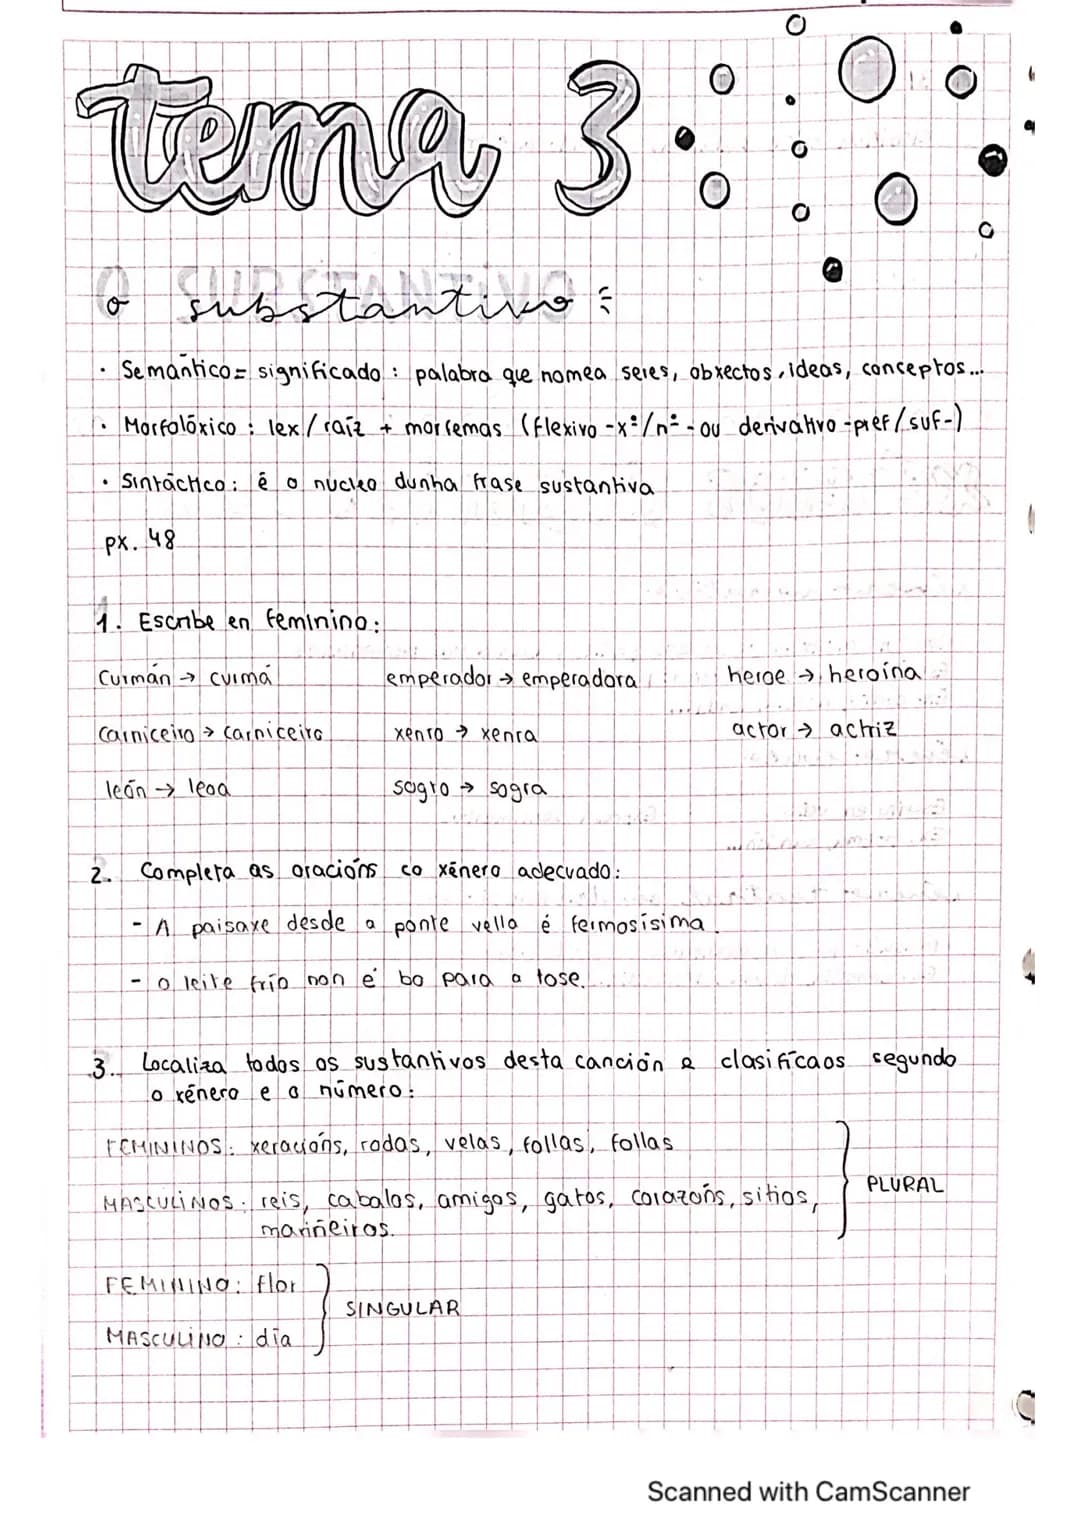 tema 3
O SUBSTANTIVO
o substantivo :
· Semántico = significado : palabra que nomea seres, obxectos, ideas, conceptos...
· Morfolóxico : lex / raíz + morfemas (flexivo -xº/nº- ou derivativo -pref / suf-)
· Sintáctico : é o núcleo dunha frase sustantiva
px. 48
1. Escribe en feminino :
Curmán → curmá emperador → emperadora heroe → heroína
Carniceiro → Carniceira xenro → xenra actor → actriz
león → leoa sogro → sogra
2. Completa as oracións co xénero adecuado :
- A paisaxe desde a ponte vella é fermosísima.
- o leite frío non é bo para a tose.
3. Localiza todos os sustantivos desta canción e clasifícaos segundo
o xénero e o número :
FEMININOS : xeracións, rodas, velas, follas, follas
MASCULINOS : reis, cabalos, amigos, gatos, corazóns, sitios,
mariñeiros.
PLURAL
FEMININO : flor
SINGULAR
MASCULINO : día
Scanned with CamScanner